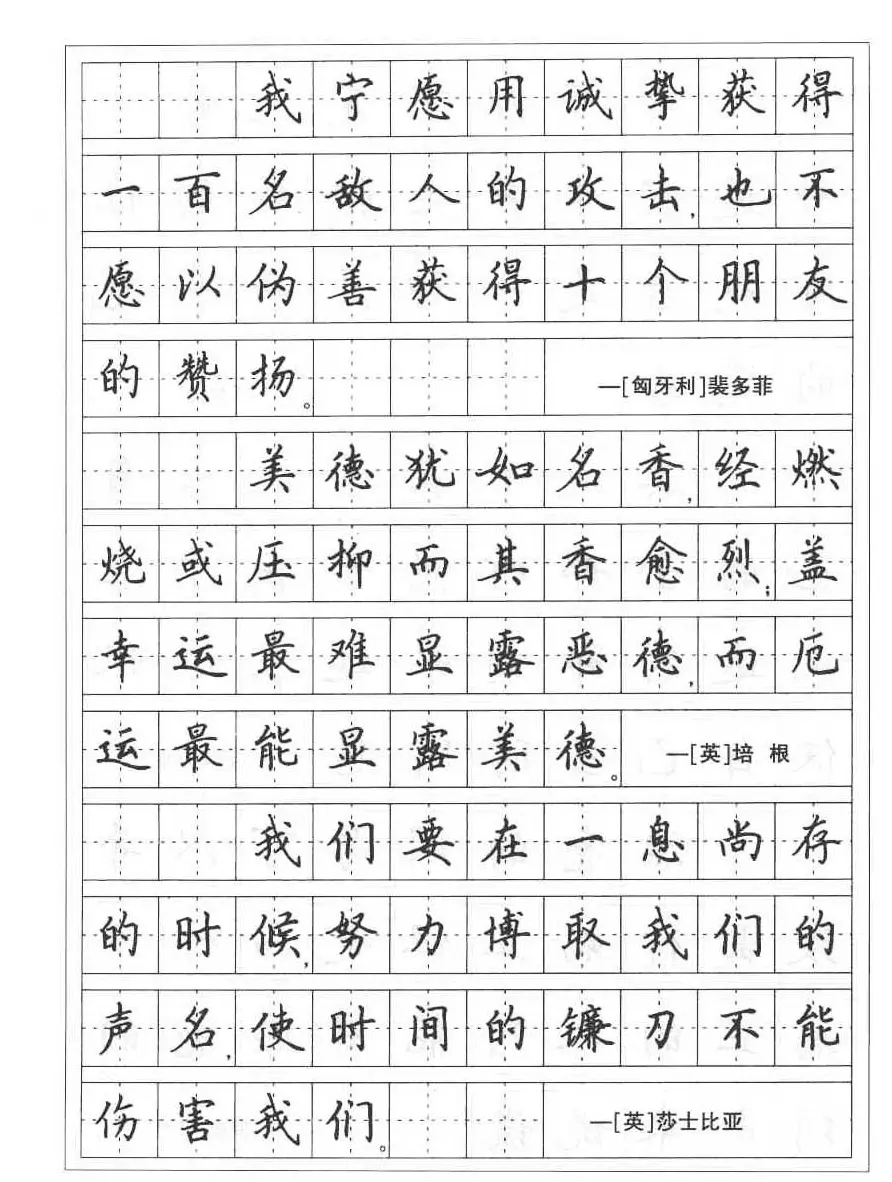 我宁愿用诚挚获得
一百名敌人的攻击,也不
愿以伪善获得十个朋友
的赞扬。 —[匈牙利]裴多菲
美德犹如名香,经燃
烧或压抑而其香愈烈;盖
幸运最难显露恶德,而厄
运最能显露美德。 —[英]培 根
我们要在一息尚存
的时候,努力博取我们的
声名,使时间的镰刀不能
伤害我们。 —[英]莎士比亚